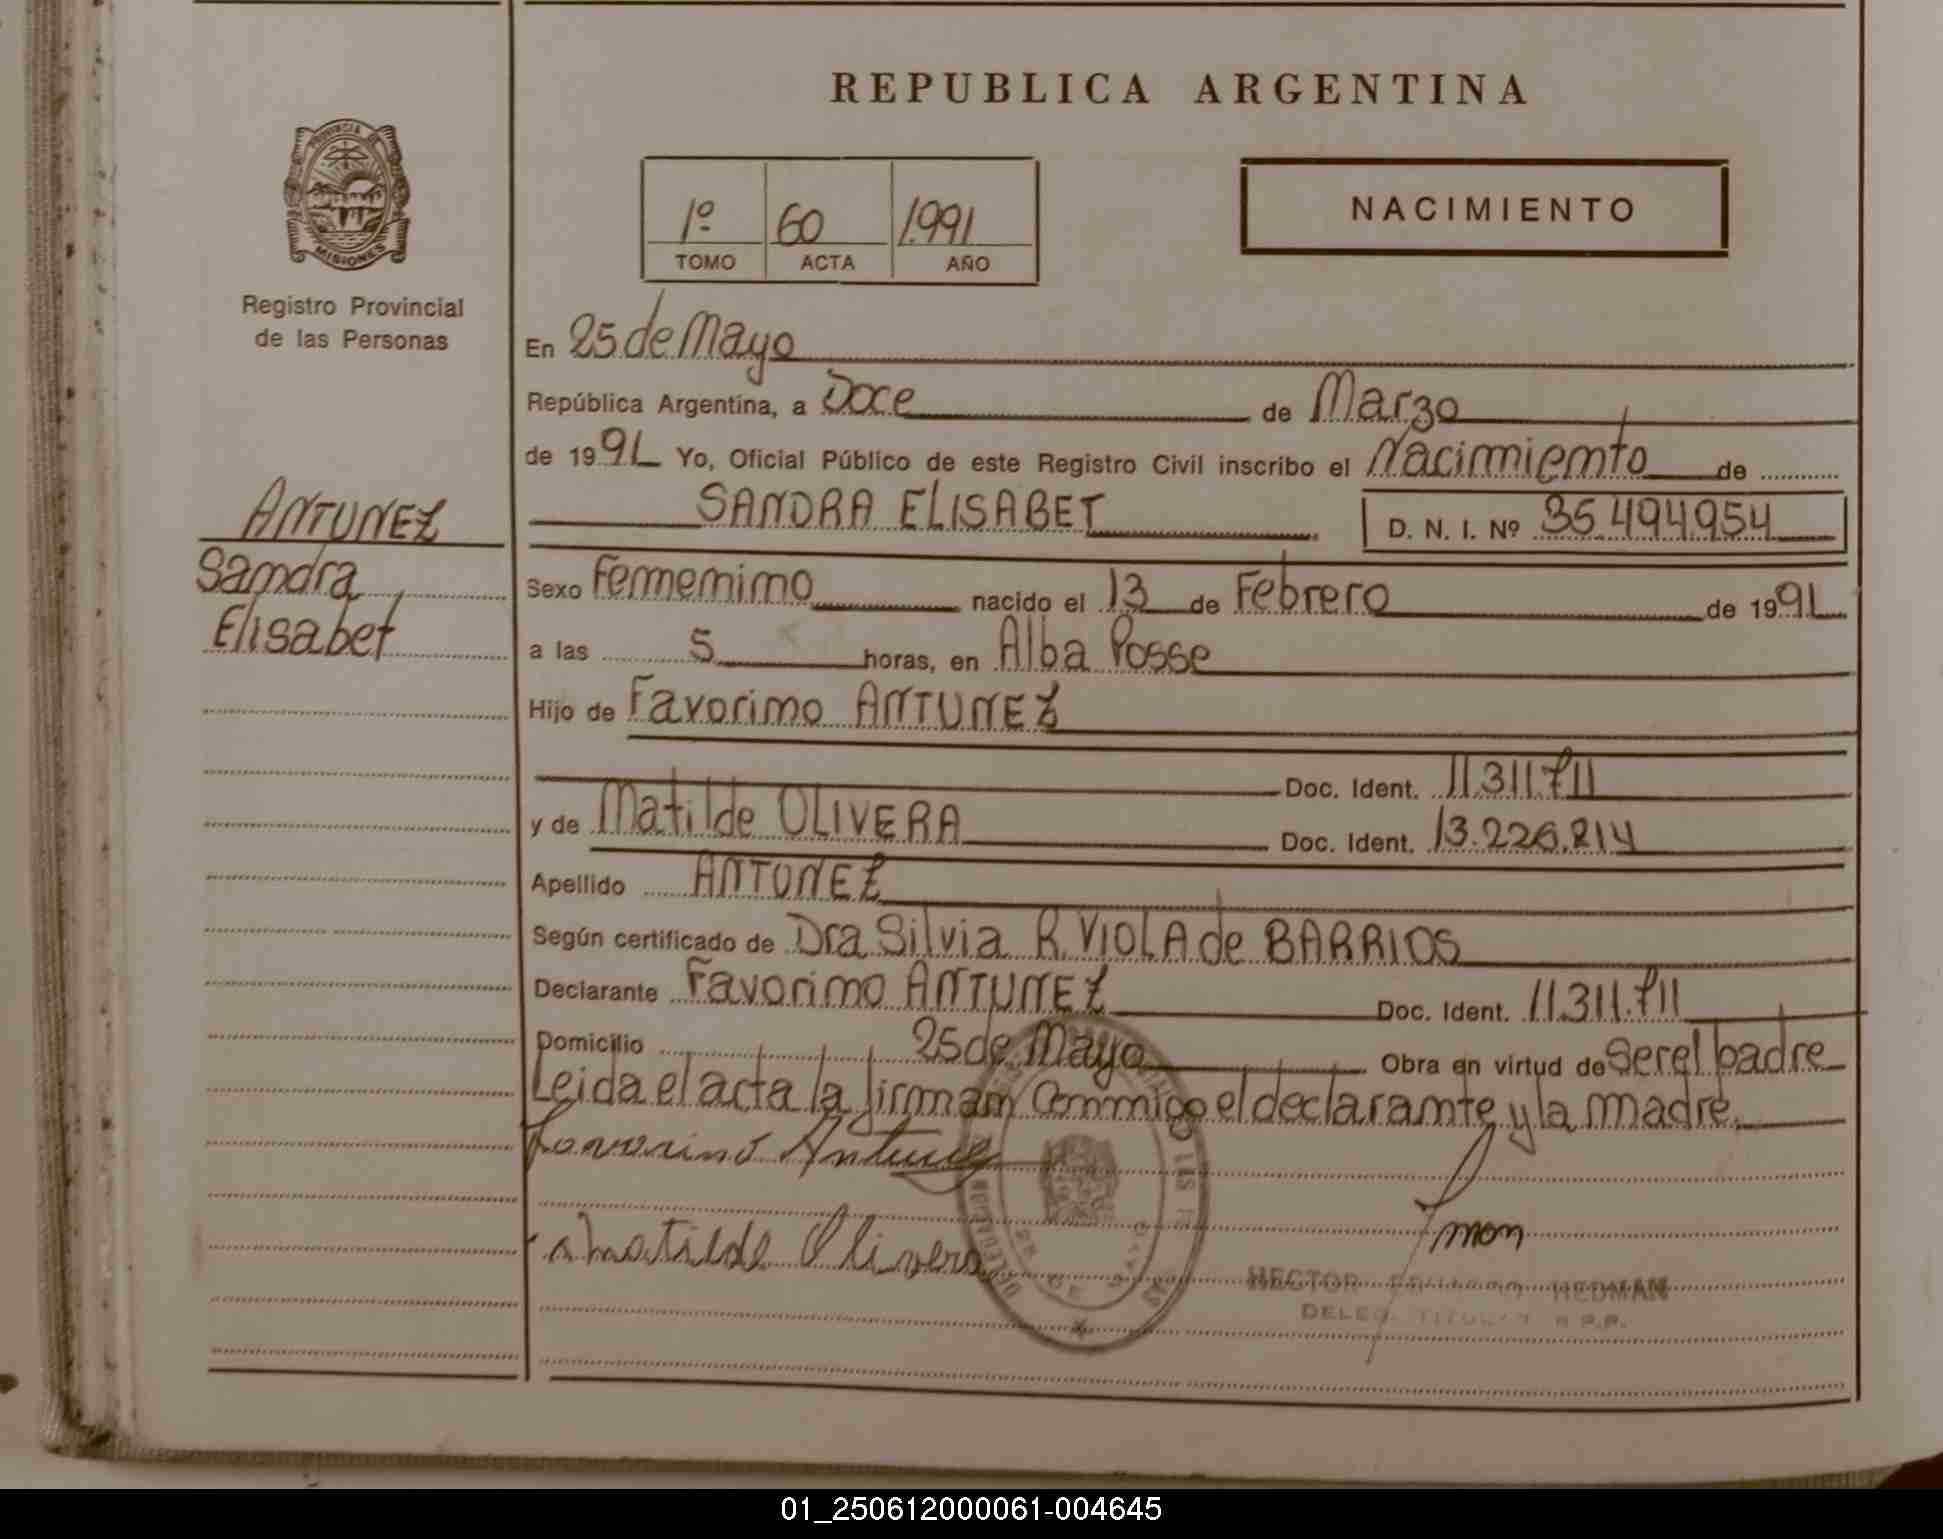 REPUBLICA ARGENTINA
PROVINCIA DE
MISIONES
Registro Provincial
de las Personas
1º 60 1991
TOMO ACTA AÑO
NACIMIENTO
En 25 de Mayo
República Argentina, a Doce de Marzo
de 1991 Yo, Oficial Público de este Registro Civil inscribo el Nacimiento de
SANDRA ELISABET D. N. I. Nº 35.494.954
ANTUNEZ
Sandra
Elisabet
Sexo Femenino nacido el 13 de Febrero de 1991
a las 5 horas, en Alba Posse
Hijo de Favorino ANTUNEZ
Doc. Ident. 11.311.711
y de Matilde OLIVERA Doc. Ident. 13.226.214
Apellido ANTUNEZ
Según certificado de Dra Silvia R. VIOLA de BARRIOS
Declarante Favorino ANTUNEZ Doc. Ident. 11.311.711
Domicilio 25 de Mayo Obra en virtud de Ser el padre
Leida el acta la firman conmigo el declarante y la madre.
Favorino Antunez
Matilde Olivera
HECTOR HEDMAN
DELEG. TITULAR R.P.P.
01_250612000061-004645